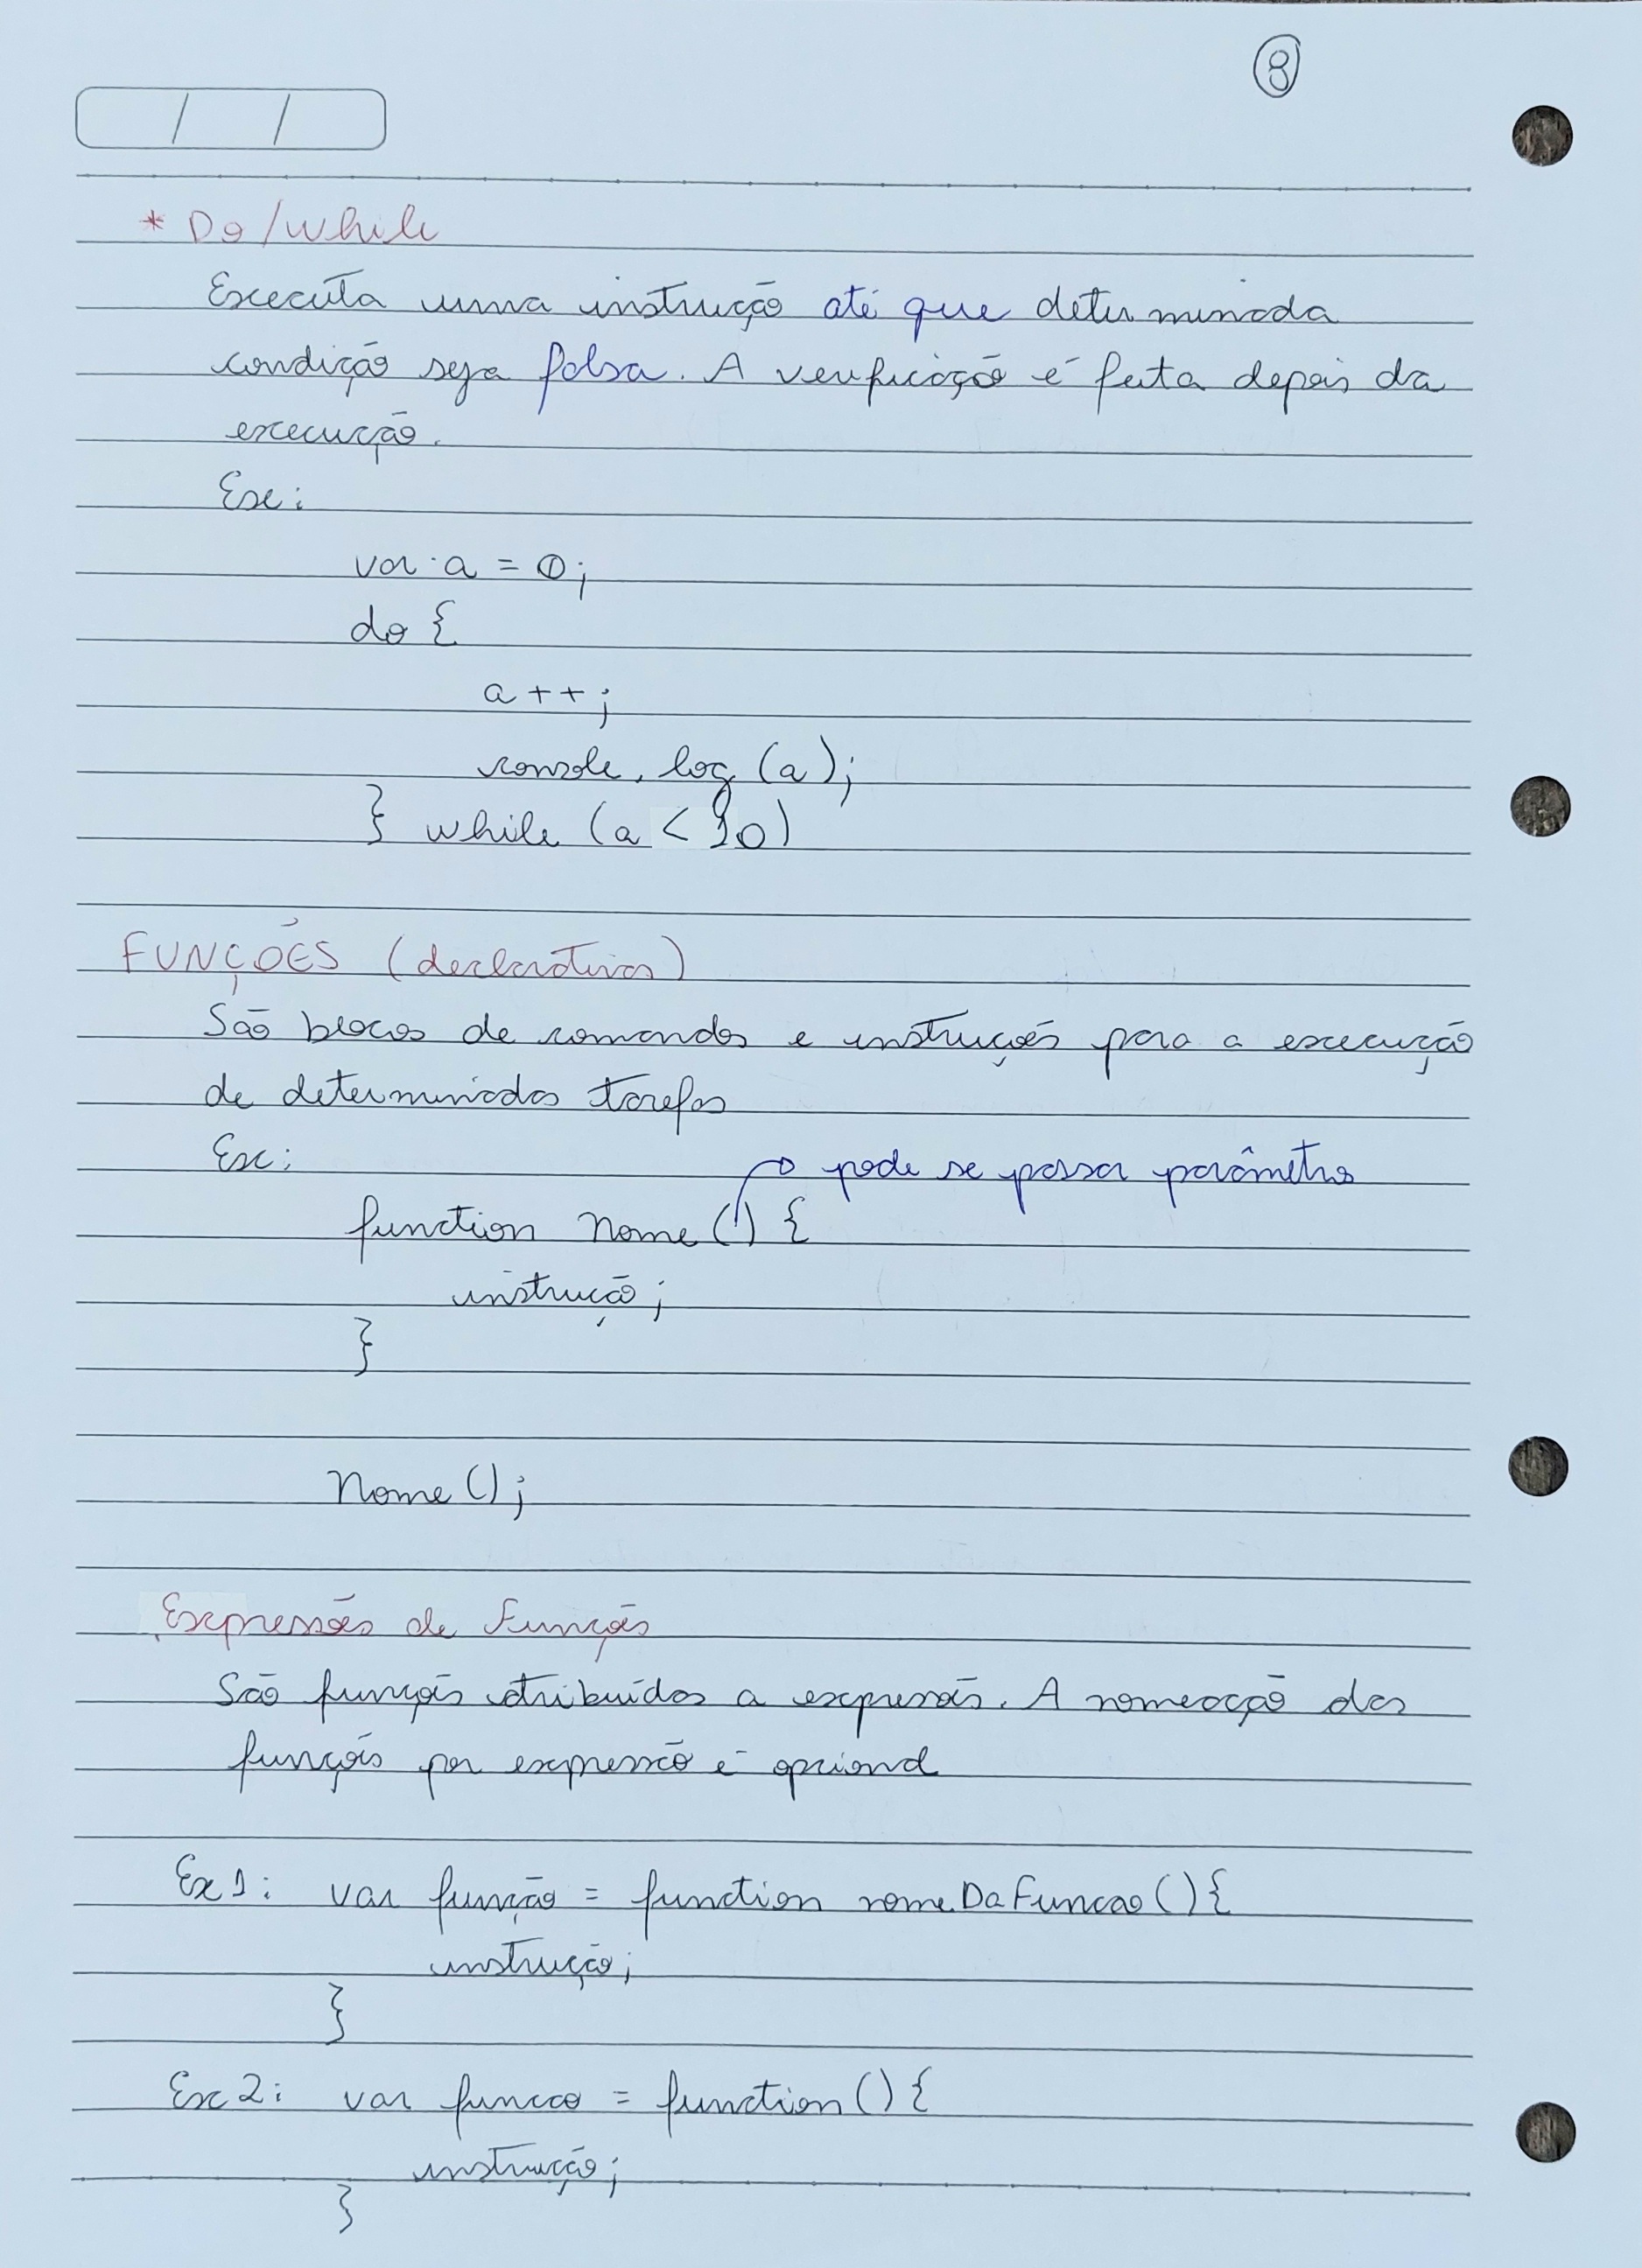 8
/ /
* Do/While
Executa uma instrução até que determinada
condição seja falsa. A verificação é feita depois da
execução.
Ex:
var a = 0;
do {
a++;
console.log(a);
} while (a < 10)
FUNÇÕES (declarativas)
São blocos de comandos e instruções para a execução
de determinadas tarefas
Ex:
pode se passar parâmetros
function Nome() {
instrução;
}
Nome();
Expressões de Funções
São funções atribuídas a expressões. A nomeação das
funções por expressão é opcional
Ex1: var função = function nomeDaFuncao(){
instrução;
}
Ex2: var funcao = function(){
instrução;
}